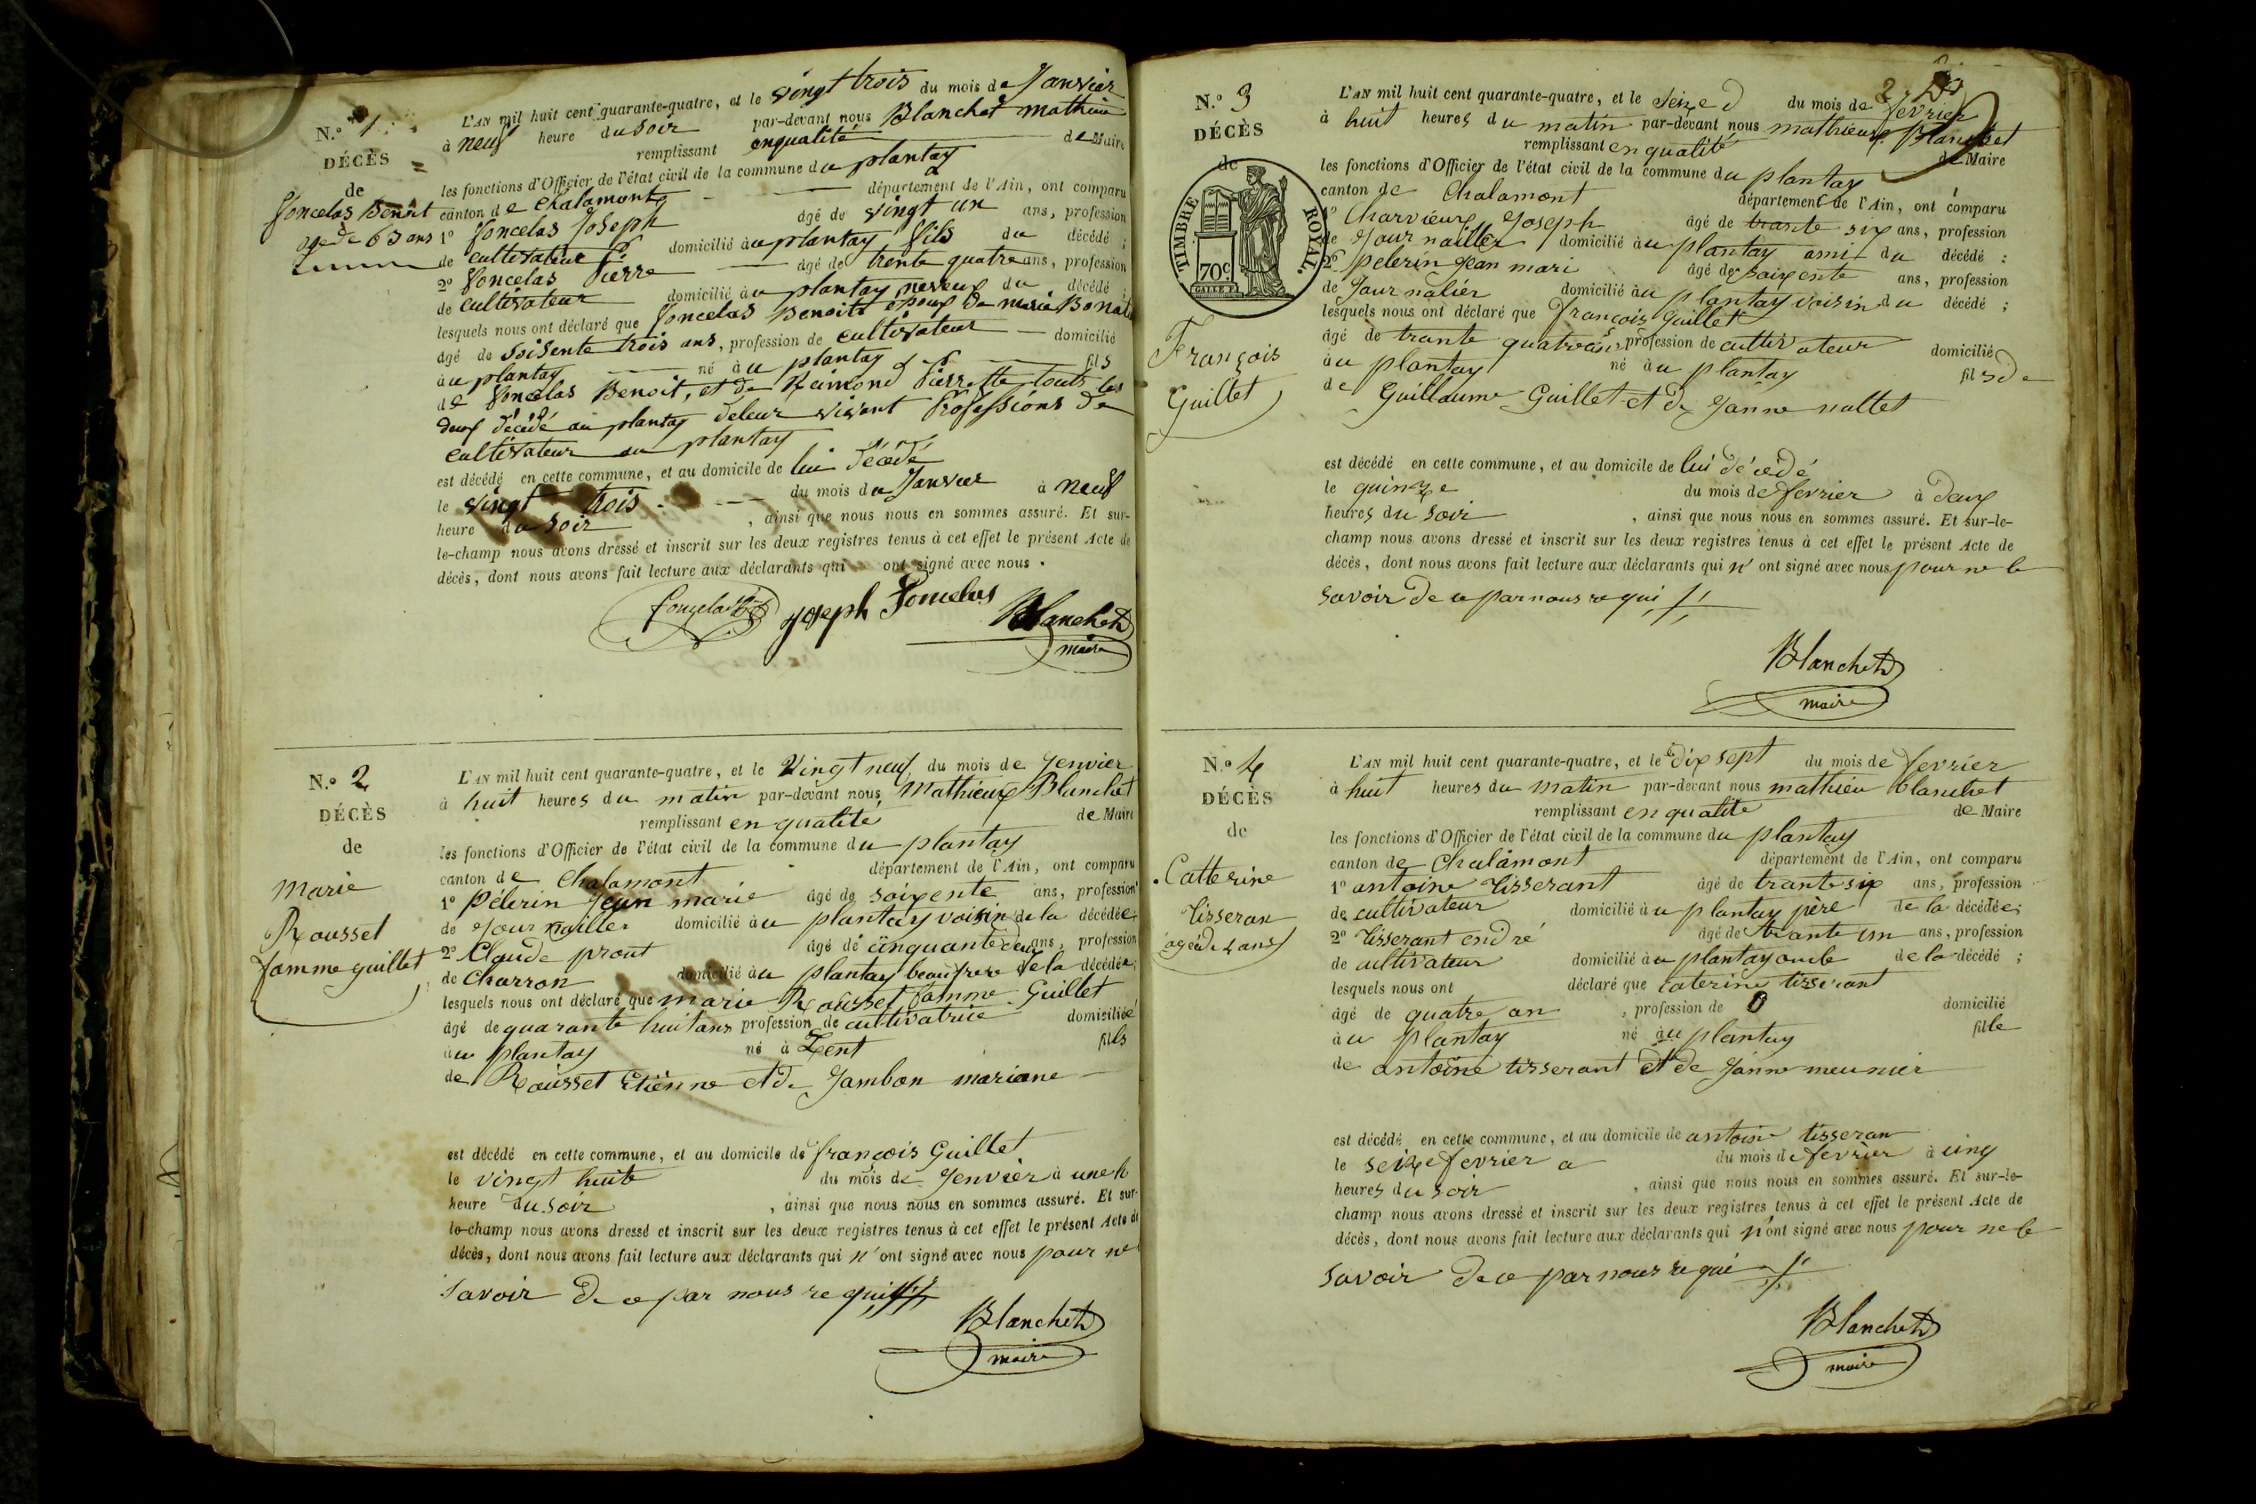 N.° 1
DÉCÈS
de
Joncelas Benoit
age de 63 ans
L'AN mil huit cent quarante-quatre, et le vingt trois du mois de Janvier
à neuf heure du soir par-devant nous Blanchet mathieu
remplissant enqualité de Maire
les fonctions d'Officier de l'état civil de la commune du plantay
canton de chalamont département de l'Ain, ont comparu
1° Joncelas Joseph âgé de vingt un ans, profession
de cultivateur domicilié àu plantay fils du décédé ;
2° Joncelas Pierre âgé de trente quatre ans, profession
de cultivateur domicilié àu plantay neveux du décédé ;
lesquels nous ont déclaré que Joncelas Benoit epoux de marie Bonat
âgé de soisente trois ans, profession de cultivateur domicilié
àu plantay né àu plantay fils
de Joncelas Benoit, et de Reimond Pierrette touts les
deux décédé au plantay deleur vivant Professions de
cultivateur au plantay
est décédé en cette commune, et au domicile de lui décédé
le vingt trois du mois du Janvier à neuf
heure du soir , ainsi que nous nous en sommes assuré. Et sur-
le-champ nous avons dressé et inscrit sur les deux registres tenus à cet effet le présent Acte de
décès, dont nous avons fait lecture aux déclarants qui ont signé avec nous .
Joseph Joncelas Blanchet
maire
N.° 2
DÉCÈS
de
Marie
Rousset
famme guillet
L'AN mil huit cent quarante-quatre, et le Vingt neuf du mois de Jenvier
à huit heures du matin par-devant nous Mathieux Blanchet
remplissant en qualité de Maire
les fonctions d'Officier de l'état civil de la commune du plantay
canton de Chalamont département de l'Ain, ont comparu
1° Pélerin Jean marie âgé de soixente ans, profession
de Journallier domicilié àu plantay voisin de la décédée;
2° Claude prout âgé de cinquante deux ans, profession
de Charron domicilié àu plantay beaufrere de la décédée;
lesquels nous ont déclaré que marie Rousset famme Guillet
âgé de quarante huit ans profession de cultivatrice domiciliée
àu plantay né à Lent fils
de Rousset Etiènne et de Jambon mariane
est décédé en cette commune, et au domicile de françois Guillet
le vingt huit du mois de Jenvier à une h
heure du soir , ainsi que nous nous en sommes assuré. Et sur-
le-champ nous avons dressé et inscrit sur les deux registres tenus à cet effet le présent Acte de
décès, dont nous avons fait lecture aux déclarants qui n'ont signé avec nous pour ne
savoir de ce par nous requi
Blanchet
maire
N.° 3
DÉCÈS
de
TIMBRE ROYAL.
70c.
François
Guillet
L'AN mil huit cent quarante-quatre, et le seize d du mois de fevrier
à huit heures du matin par-devant nous mathieux Blanchet
remplissant en qualité de Maire
les fonctions d'Officier de l'état civil de la commune du plantay
canton de Chalamont département de l'Ain, ont comparu
1° Charvieux Joseph âgé de trante six ans, profession
de Journallier domicilié àu plantay ami du décédé :
2° pelerin Jean mari âgé de soixente ans, profession
de Journalier domicilié àu plantay voisin du décédé ;
lesquels nous ont déclaré que françois Guillet
âgé de trante quatre ans profession de cultivateur domicilié
àu plantay né àu plantay fils de
de Guillaume Guillet et de Janne nallet
est décédé en cette commune, et au domicile de lui décédé
le quinze du mois de fevrier à deux
heures du soir , ainsi que nous nous en sommes assuré. Et sur-le-
champ nous avons dressé et inscrit sur les deux registres tenus à cet effet le présent Acte de
décès, dont nous avons fait lecture aux déclarants qui n'ont signé avec nous pour ne le
savoir de ce par nous requi
Blanchet
maire
N.° 4
DÉCÈS
de
Catterine
Tisseran
agée de 4 ans
L'AN mil huit cent quarante-quatre, et le dix sept du mois de fevrier
à huit heures du matin par-devant nous mathieu blanchet
remplissant en qualité de Maire
les fonctions d'Officier de l'état civil de la commune du plantay
canton de Chalamont département de l'Ain, ont comparu
1° antoine Tisserant âgé de trante six ans, profession
de cultivateur domicilié àu plantay père de la décédée;
2° Tisserant endré âgé de trante un ans, profession
de cultivateur domicilié àu plantay oncle de la décédé ;
lesquels nous ont déclaré que caterine tisserant
âgé de quatre an , profession de 0 domicilié
àu plantay né àu plantay fille
de antoine tisserant et de Janne meunier
est décédé en cette commune, et au domicile de antoine tisseran
le seize fevrier a du mois de fevrier à cinq
heures du soir , ainsi que nous nous en sommes assuré. Et sur-le-
champ nous avons dressé et inscrit sur les deux registres tenus à cet effet le présent Acte de
décès, dont nous avons fait lecture aux déclarants qui n'ont signé avec nous pour ne le
savoir de ce par nous requi
Blanchet
maire